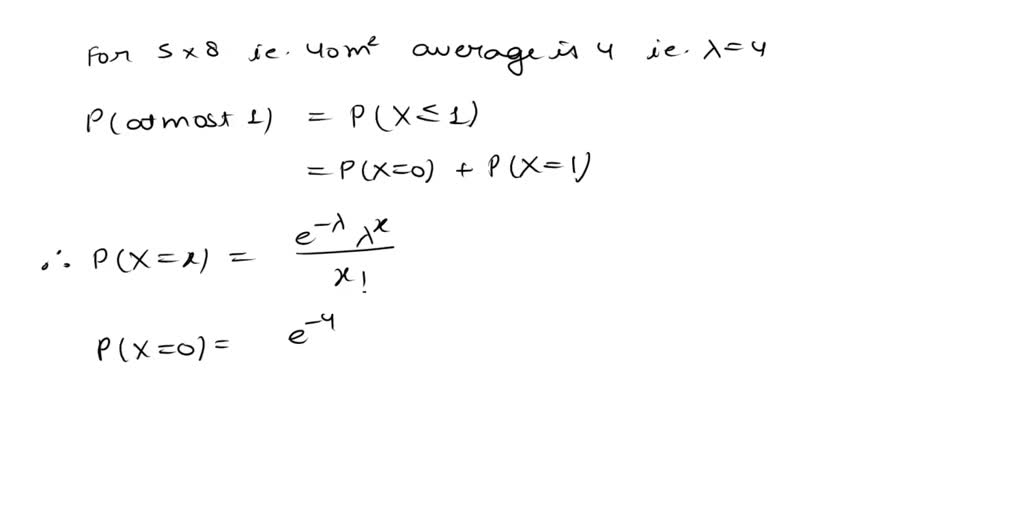 For 5 x 8 ie. 40m² average is 4 ie. λ=4
P(atmost 1) = P(X≤1)
= P(X=0) + P(X=1)
∴ P(X=x) = e^-λ λ^x / x!
P(X=0) = e^-4